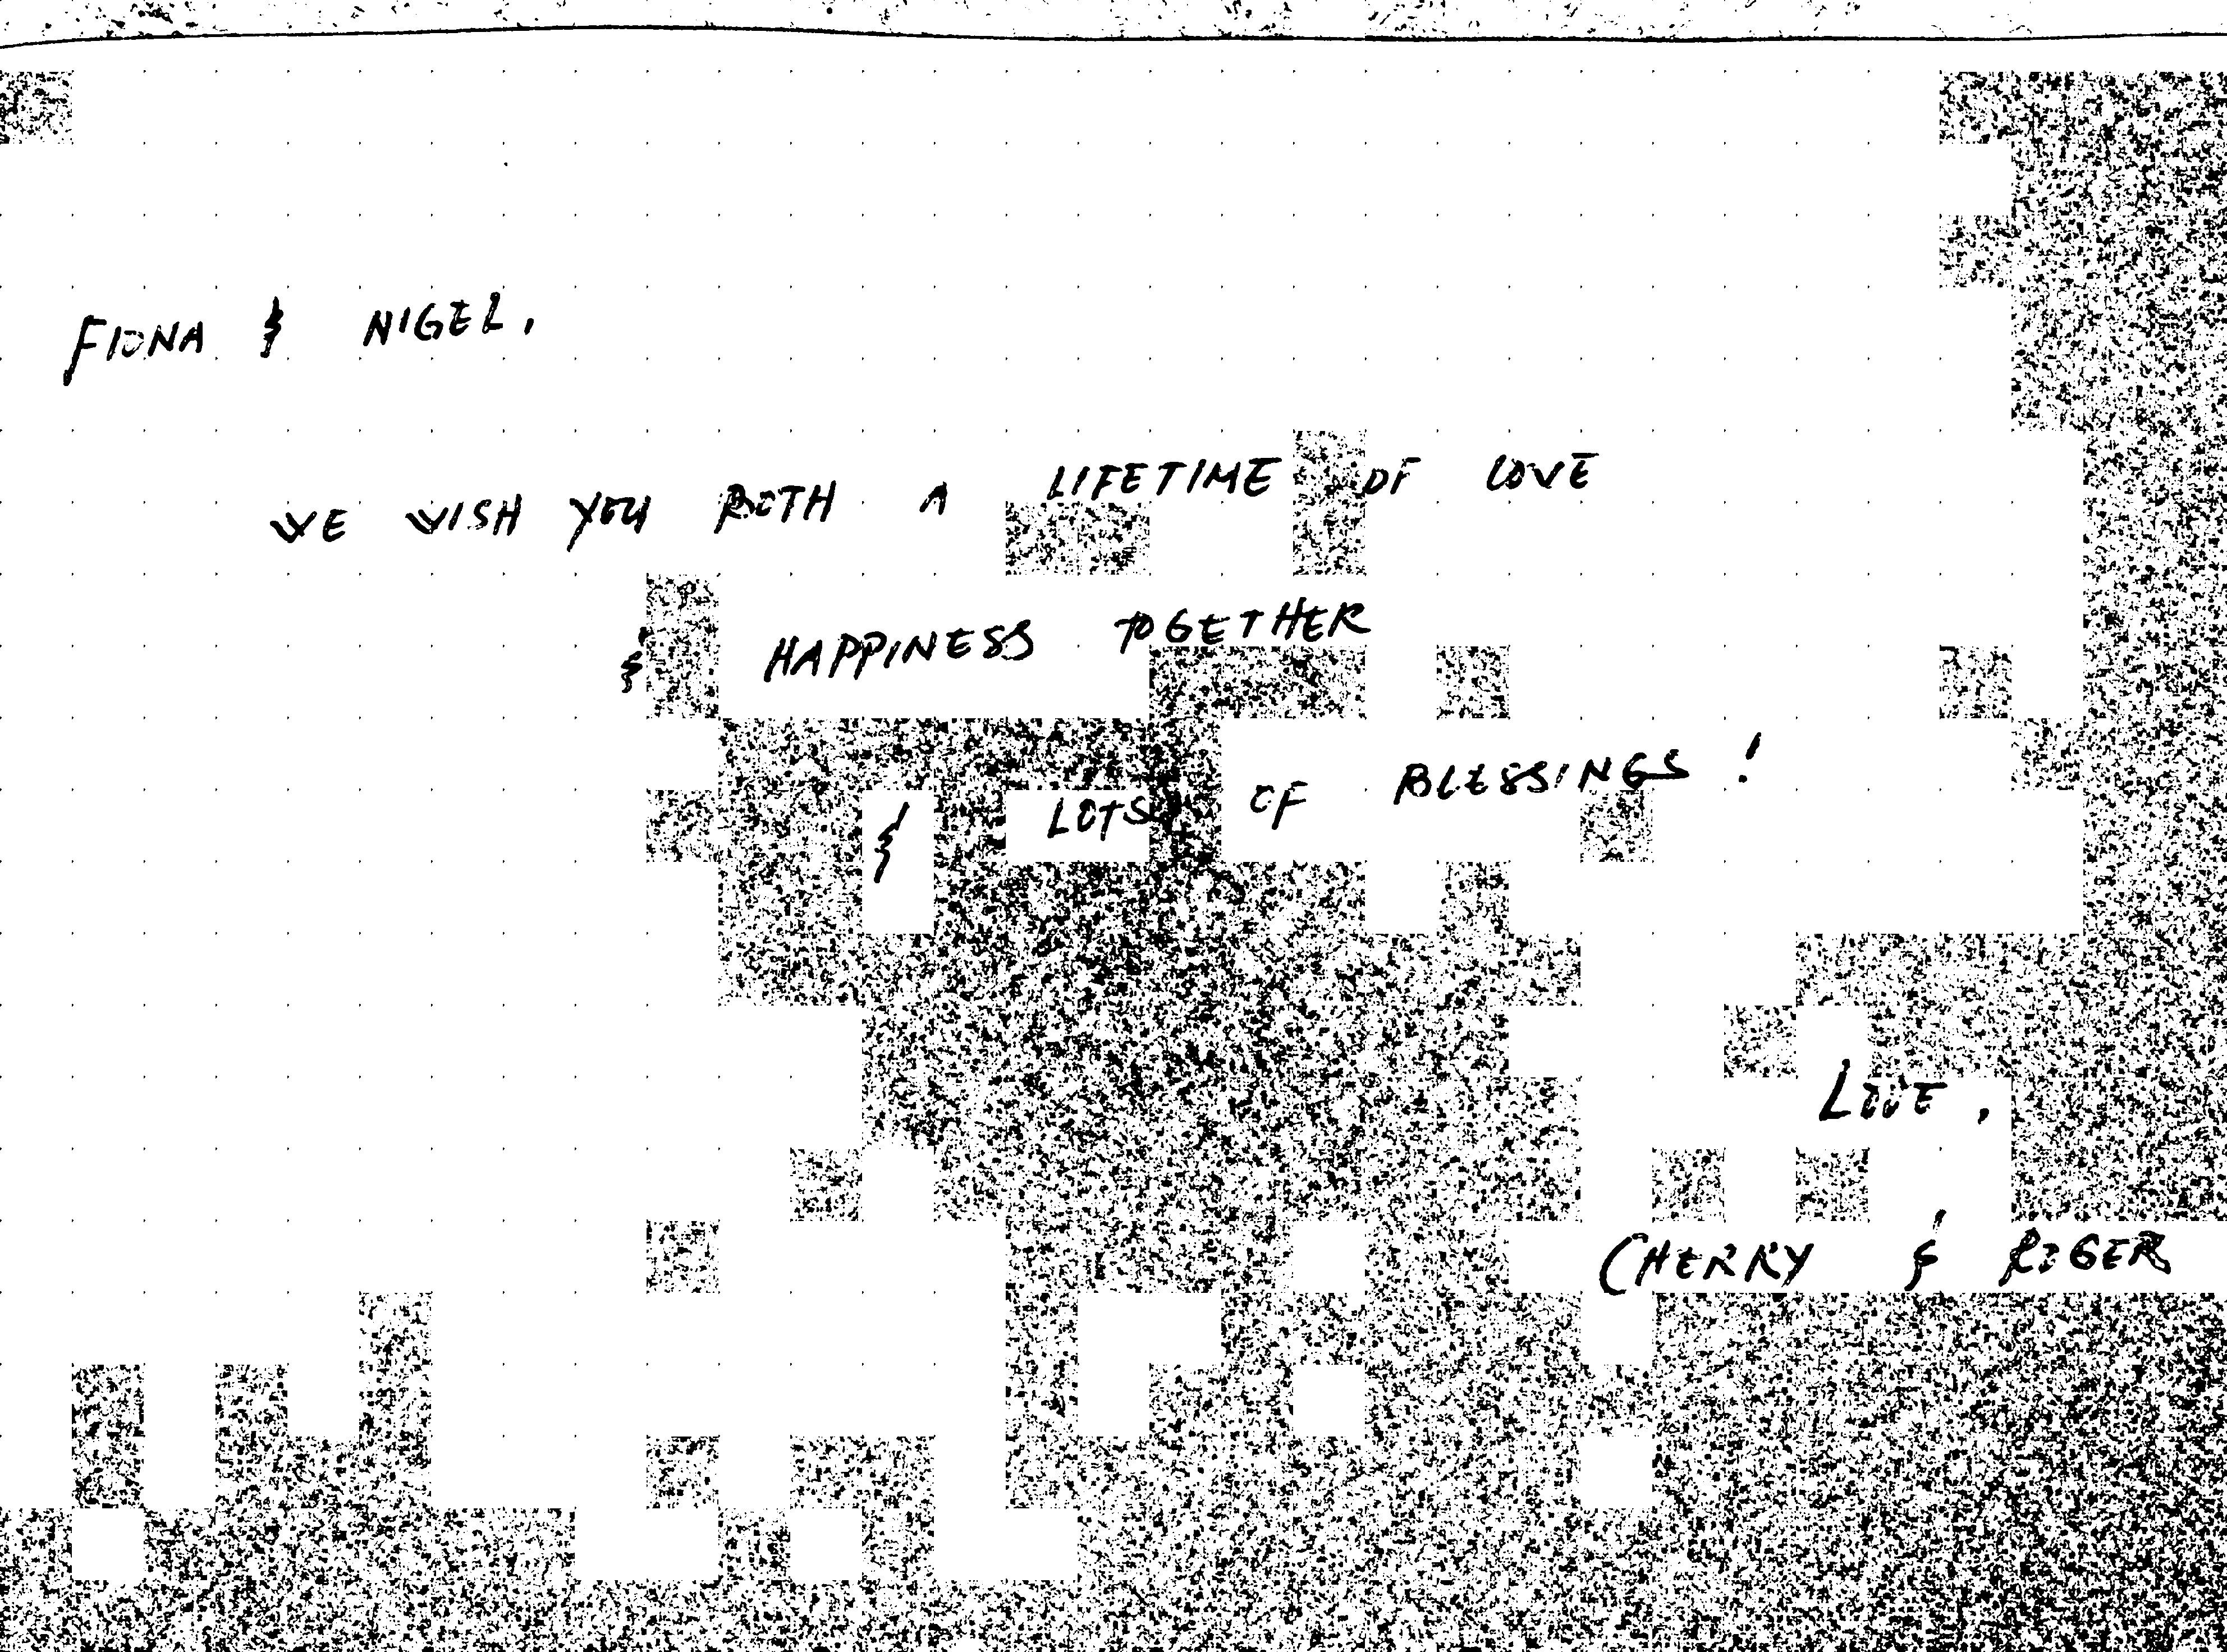 FIONA & NIGEL,
WE WISH YOU BOTH A LIFETIME OF LOVE
& HAPPINESS TOGETHER
& LOTS OF BLESSINGS!
LOVE,
CHERRY & ROGER